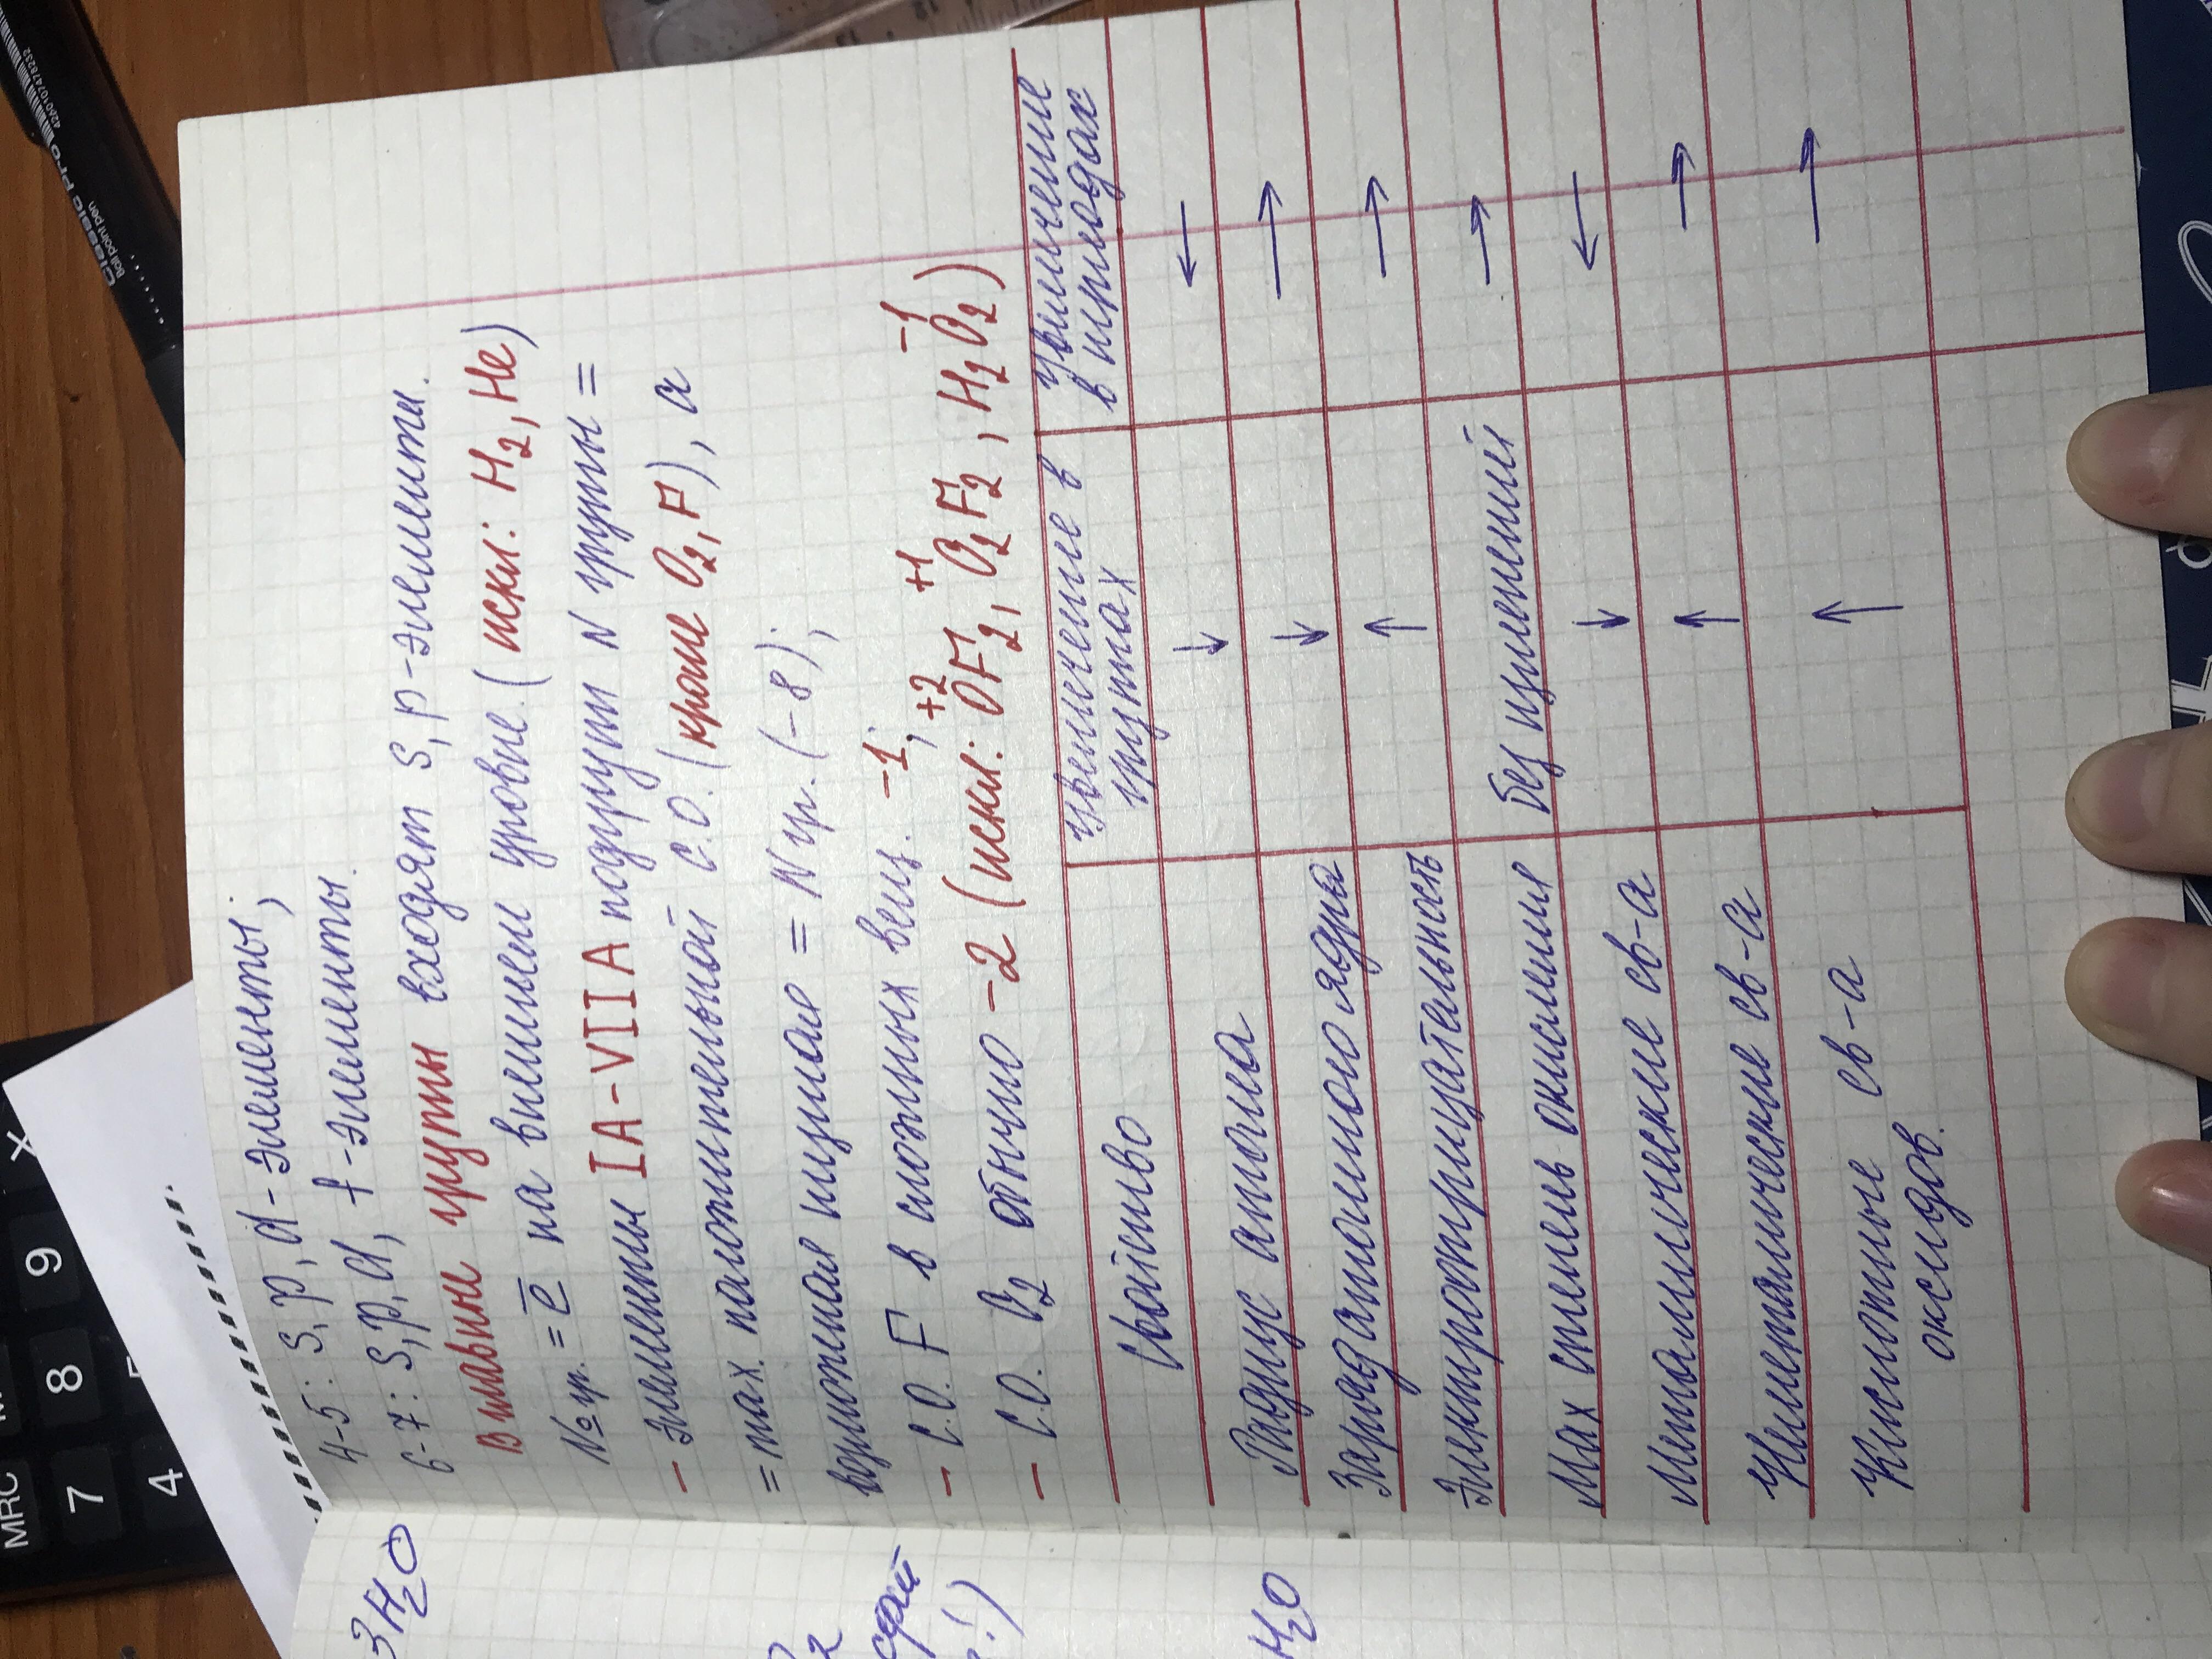 4-5: s, p, d - элементы;
6-7: s, p, d, f - элементы.
В главные группы входят s, p - элементы.
№ гр. = e̅ на внешнем уровне. (искл: H₂, He)
- элементы IA-VIIA подгрупп N группы =
= max положительной с.о. (кроме O₂, F), а
возможная низшая = N гр. (-8);
- с.о. F в сложных вещ. -1;
- с.о. O₂ обычно -2 (искл: O⁺²F⁻¹₂, O⁺¹₂F⁻¹₂, H₂O₂⁻¹)
Свойство увеличение в группах увеличение в периодах
Радиус атома ↓ ←
Заряд атомного ядра ↓ →
Электроотрицательность ↑ →
Max степень окисления без изменений →
Металлические св-а ↓ ←
Неметаллические св-а ↑ →
Кислотные св-а ↑ →
оксидов.
3H₂O
2
серый
!)
H₂O
Classic Pro
Ball point pen
4260107478232
MRC
7 8 9 ×
4